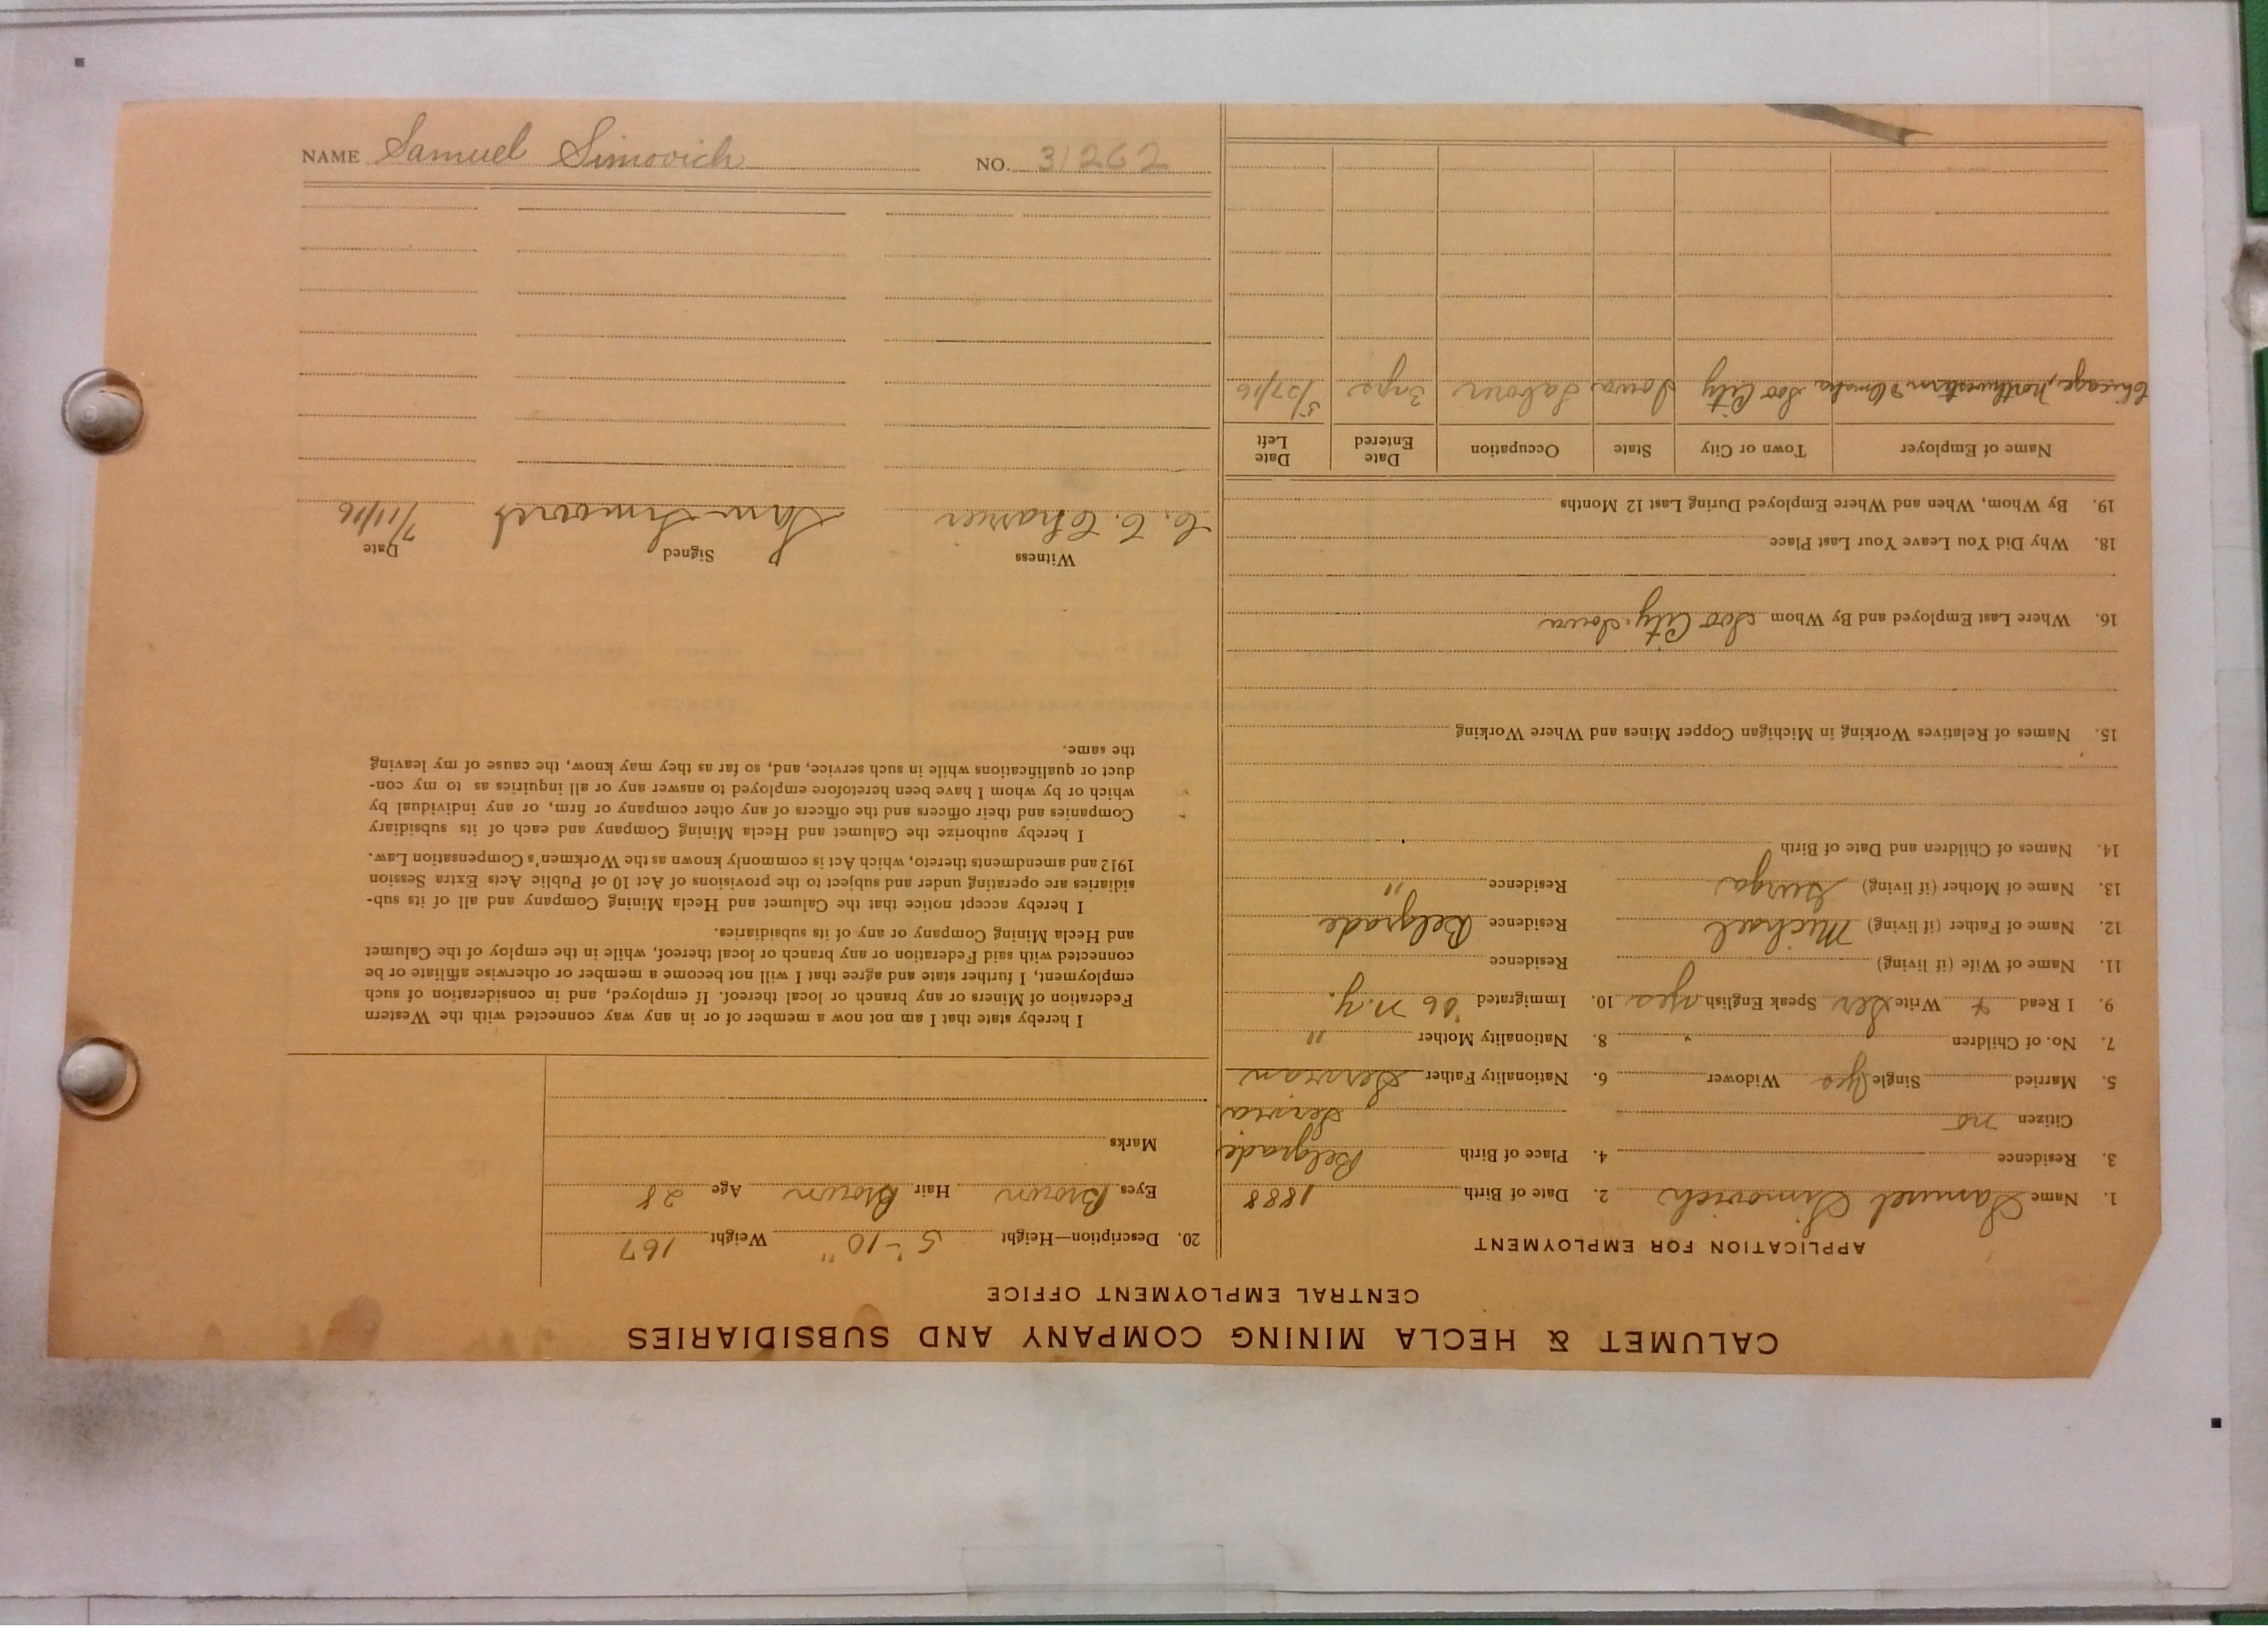 CALUMET & HECLA MINING COMPANY AND SUBSIDIARIES
CENTRAL EMPLOYMENT OFFICE
APPLICATION FOR EMPLOYMENT
1. Name Samuel Simovich 2. Date of Birth 1888
3. Residence 4. Place of Birth Belgrade
Citizen no Servia
5. Married Single yes Widower 6. Nationality Father Servian
7. No. of Children 8. Nationality Mother "
9. I Read + Write Ser Speak English yes 10. Immigrated '06 N.Y.
11. Name of Wife (if living) Residence
12. Name of Father (if living) Michael Residence Belgrade
13. Name of Mother (if living) Residence "
14. Names of Children and Date of Birth
15. Names of Relatives Working in Michigan Copper Mines and Where Working
16. Where Last Employed and By Whom Soo City, Iowa
18. Why Did You Leave Your Last Place
19. By Whom, When and Where Employed During Last 12 Months
Name of Employer Town or City State Occupation Date Entered Date Left
Chicago, Northwestern & Omaha Soo City Iowa Laborer 3 yrs 5/27/16
20. Description—Height 5'-10" Weight 167
Eyes Brown Hair Brown Age 28
Marks
I hereby state that I am not now a member of or in any way connected with the Western
Federation of Miners or any branch or local thereof. If employed, and in consideration of such
employment, I further state and agree that I will not become a member or otherwise affiliate or be
connected with said Federation or any branch or local thereof, while in the employ of the Calumet
and Hecla Mining Company or any of its subsidiaries.
I hereby accept notice that the Calumet and Hecla Mining Company and all of its sub-
sidiaries are operating under and subject to the provisions of Act 10 of Public Acts Extra Session
1912 and amendments thereto, which Act is commonly known as the Workmen's Compensation Law.
I hereby authorize the Calumet and Hecla Mining Company and each of its subsidiary
Companies and their officers and the officers of any other company or firm, or any individual by
which or by whom I have been heretofore employed to answer any or all inquiries as to my con-
duct or qualifications while in such service, and, so far as they may know, the cause of my leaving
the same.
Witness Signed Date
C. C. Sam 7/11/16
NAME Samuel Simovich NO. 31262